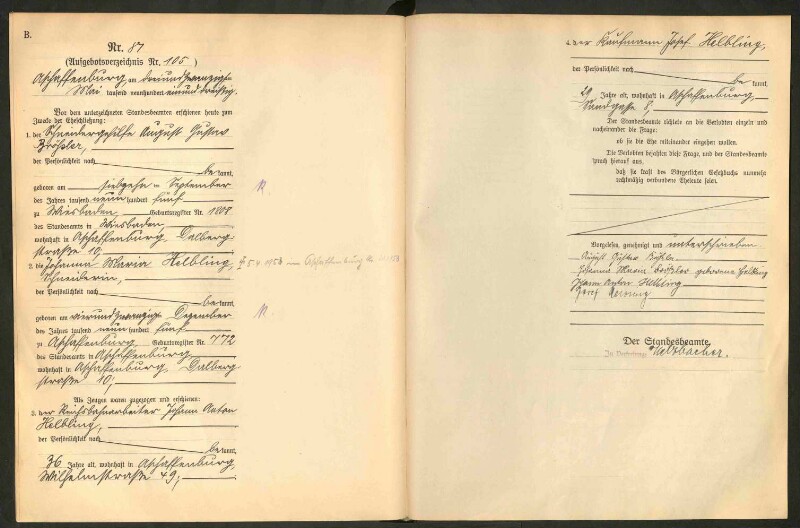 B.
Nr. 87
(Aufgebotsverzeichnis Nr. 105)
Aschaffenburg, am dreiundzwanzigsten
Mai tausend neunhundert einunddreissig.
Vor dem unterzeichneten Standesbeamten erschienen heute zum
Zwecke der Eheschließung:
1. der Schneidergehilfe August Gustav
der Persönlichkeit nach
be kannt,
geboren am siebzehn ten September
des Jahres tausend neun hundert fünf
zu Wiesbaden, Geburtsregister Nr. 1808
des Standesamts in Wiesbaden,
wohnhaft in Aschaffenburg, Dalberg
straße 10;
2. die Johanna Maria Helbling,
Schneiderin,
der Persönlichkeit nach
be kannt,
geboren am vierundzwanzigsten Dezember
des Jahres tausend neun hundert fünf
zu Aschaffenburg, Geburtsregister Nr. 772
des Standesamts in Aschaffenburg,
wohnhaft in Aschaffenburg, Dalberg
straße 10;
Als Zeugen waren zugezogen und erschienen:
3. der Reichsbahnarbeiter Johann Anton
Helbling,
der Persönlichkeit nach
be kannt,
36 Jahre alt, wohnhaft in Aschaffenburg,
Wilhelmstraße 49;
4. der Kaufmann Josef Helbling,
der Persönlichkeit nach
be kannt,
29 Jahre alt, wohnhaft in Aschaffenburg,
Sandgasse 8;
Der Standesbeamte richtete an die Verlobten einzeln und
nacheinander die Frage:
ob sie die Ehe miteinander eingehen wollen.
Die Verlobten bejahten diese Frage, und der Standesbeamte
sprach hierauf aus,
daß sie kraft des Bürgerlichen Gesetzbuchs nunmehr
rechtmäßig verbundene Eheleute seien.
Vorgelesen, genehmigt und unterschrieben
August Gustav
Johanna Maria geborene Helbling
Johann Anton Helbling
Josef Helbling
Der Standesbeamte.
In Vertretung: